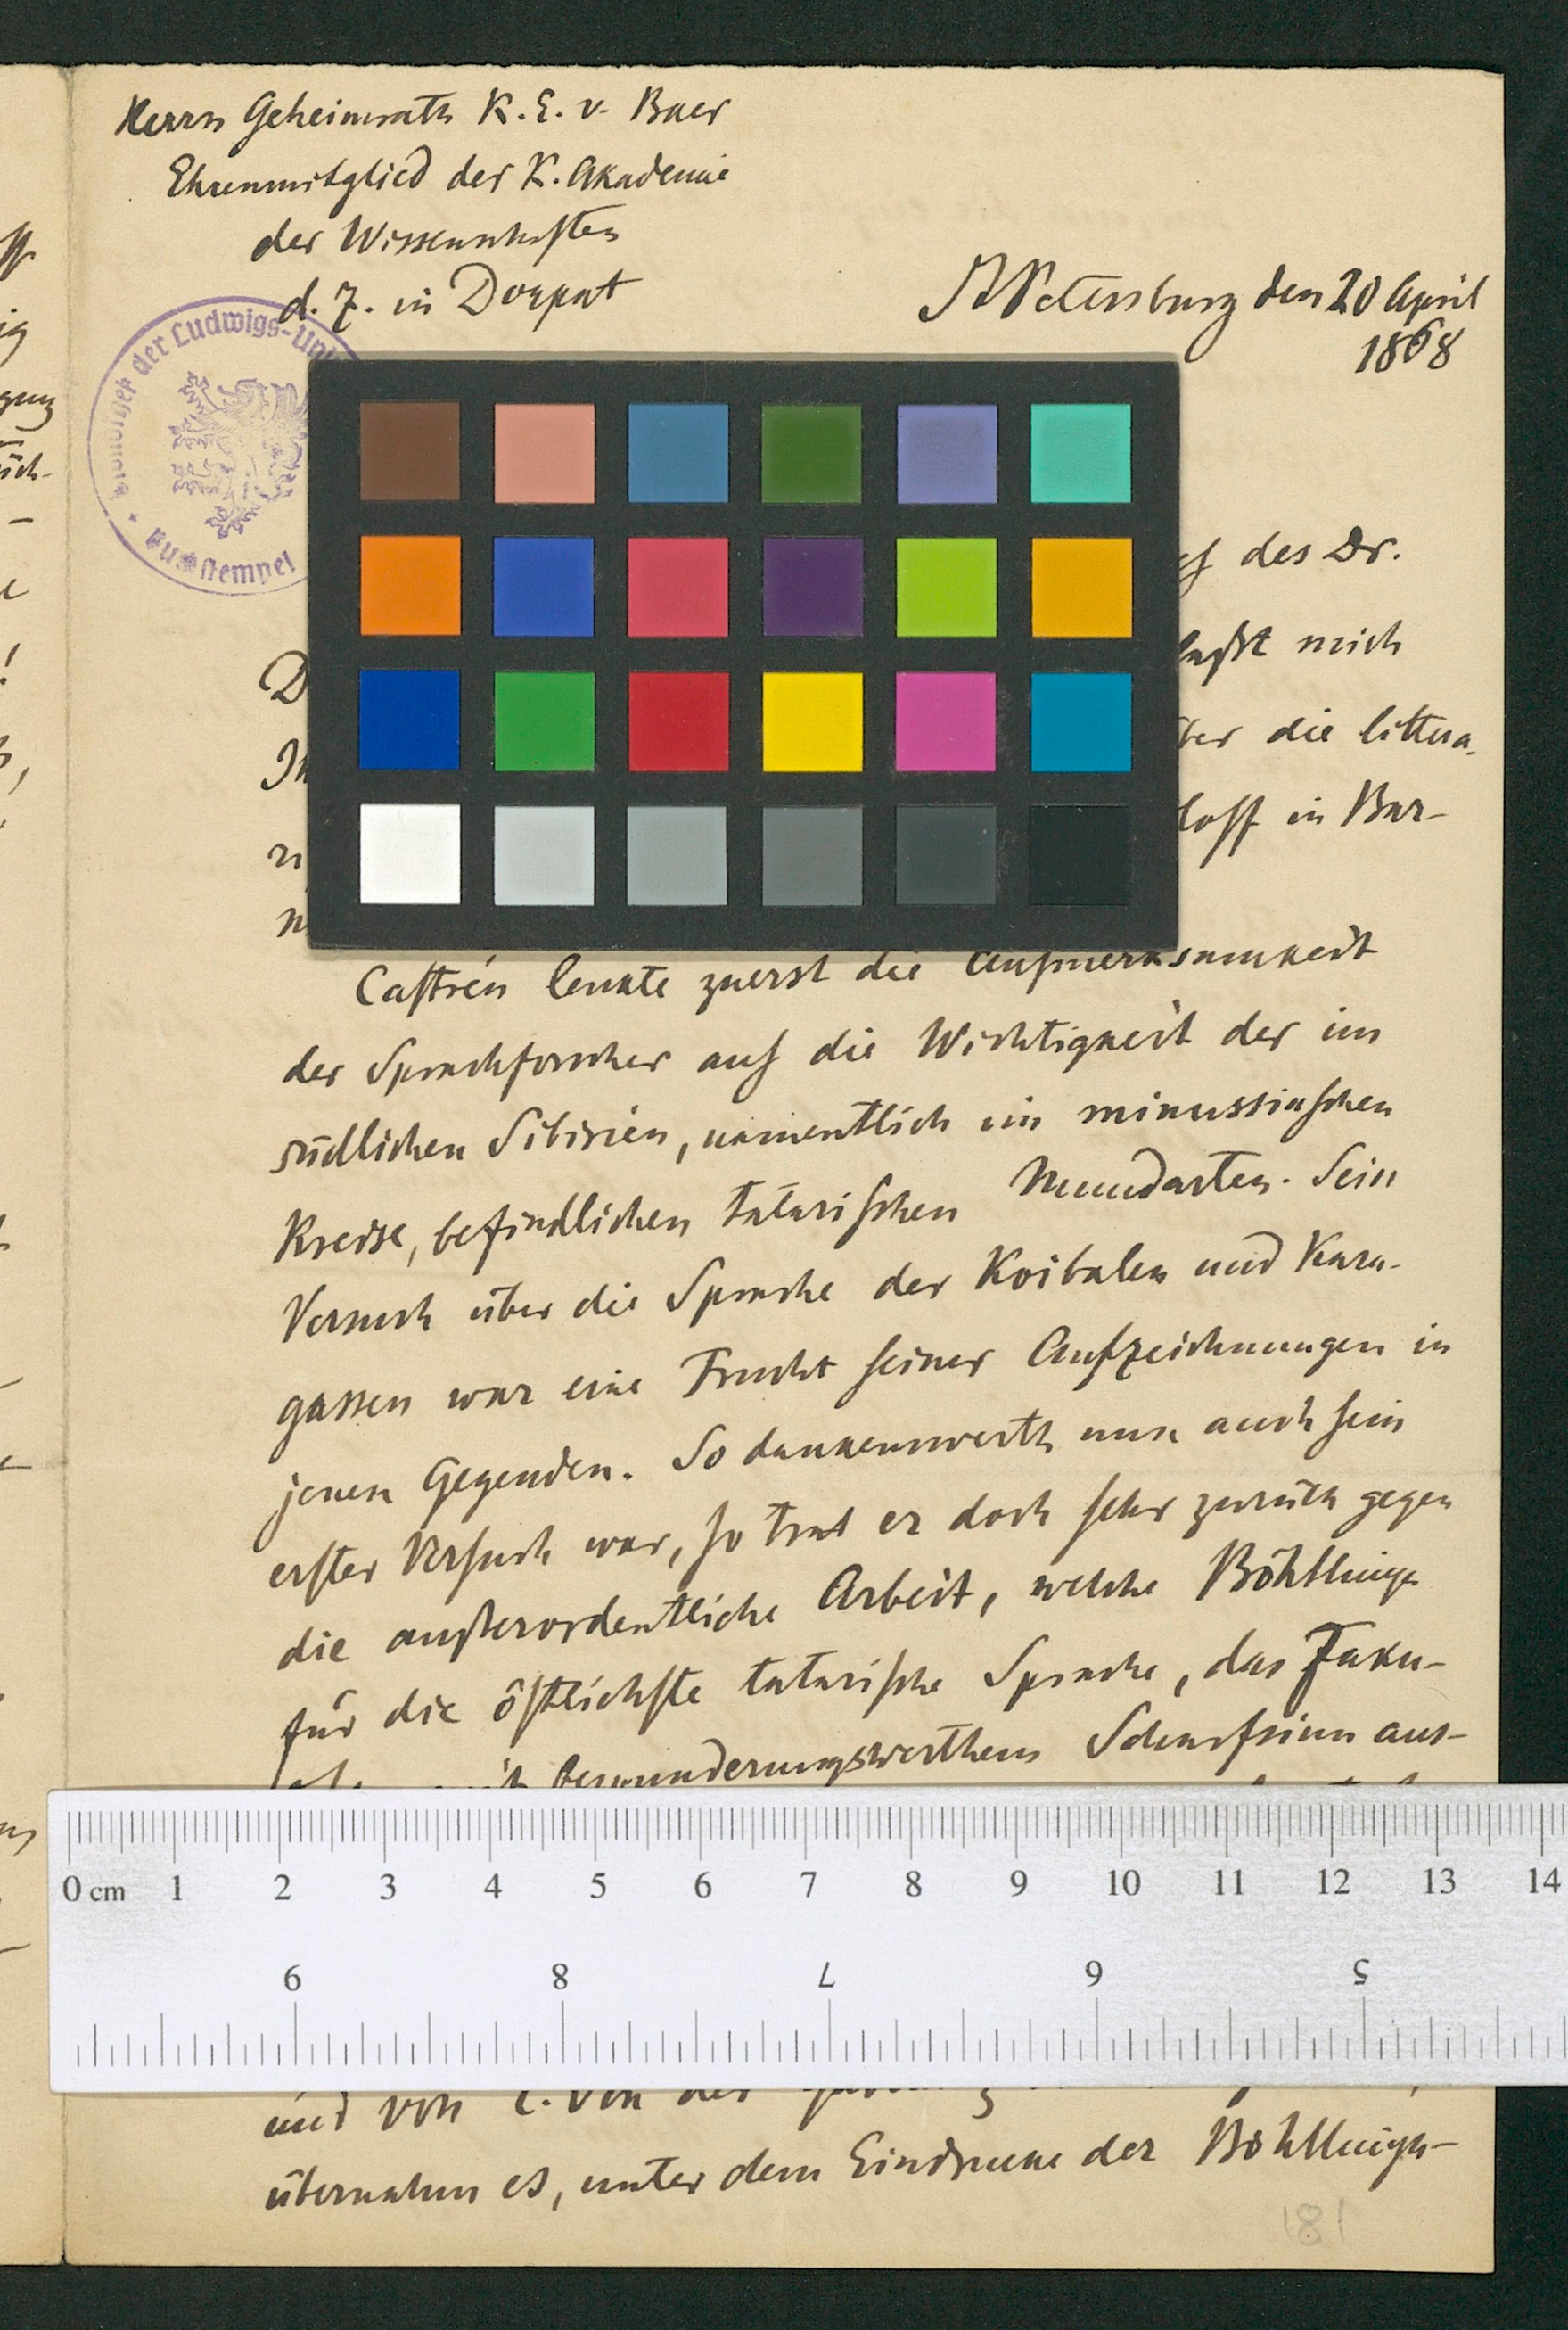 Herrn Geheimrath K. E. v. Baer
Ehrenmitglied der K. Akademie
der Wissenschaften
d. Z. in Dorpat
St Petersburg den 20 April
1868
der Ludwigs-Uni
stempel
des Dr.
D
mich
In
ber die littera-
loff in Bar-
n
Castrén lenkte zuerst die Aufmerksamkeit
der Sprachforscher auf die Wichtigkeit der im
südlichen Sibirien, namentlich im minussinschen
Kreise, befindlichen tatarischen Mundarten. Sein
Versuch über die Sprache der Koibalen und Kara-
gassen war eine Frucht seiner Aufzeichnungen in
jenen Gegenden. So dankenswerth nun auch sein
erster Versuch war, so trat er doch sehr zurück gegen
die außerordentliche Arbeit, welche Böhtlingk
für die östlichste tatarische Sprache, das Jaku-
bewunderungswerthem Scharfsinn aus-
0 cm 1 2 3 4 5 6 7 8 9 10 11 12 13 14
9 8 7 6 5
und von
übernahm es, unter dem Eindrucke der Böhtlingk-
181